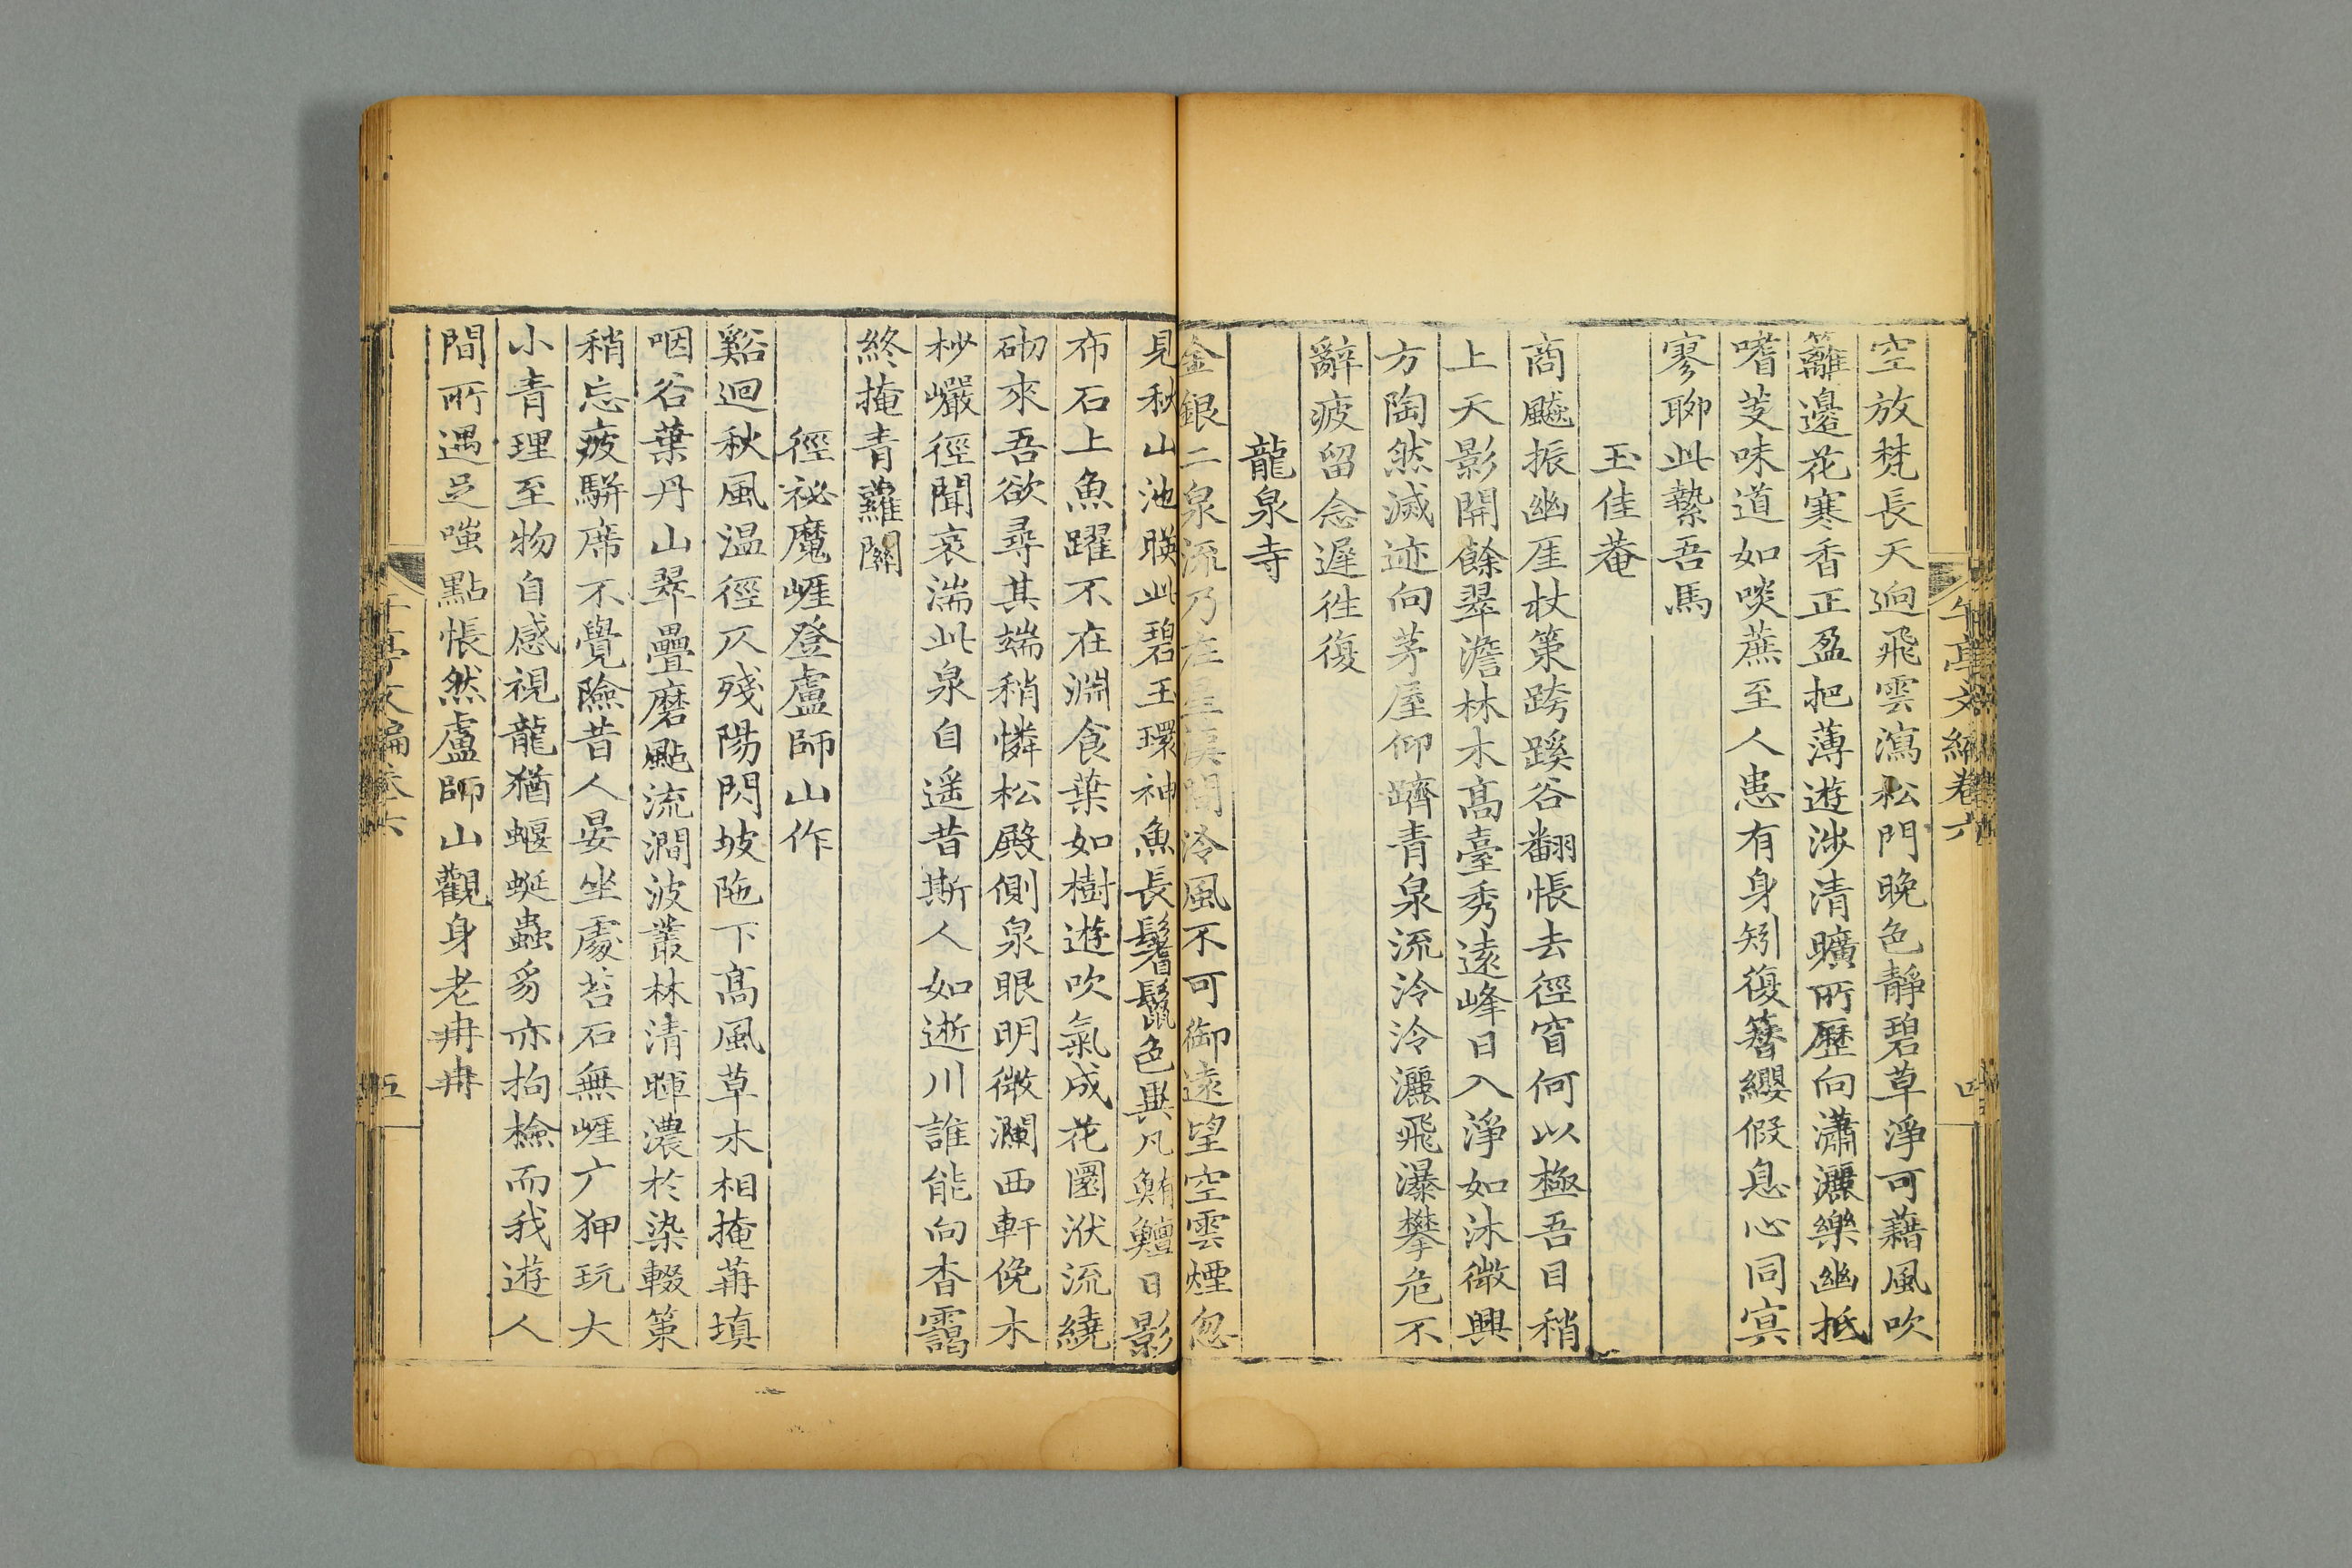 午亭文編卷六
四
空放梵長天迥飛雲瀉松門晚色靜碧草淨可藉風吹
籬邊花寒香正盈把薄遊涉清曠所歷向瀟灑樂幽抵
嗜芰味道如啖蔗至人患有身矧復簪纓假息心同寘
寥聊此縶吾馬
玉佳菴
商飈振幽厓杖策跨蹊谷翻悵去徑窅何以極吾目稍
上天影開餘翠澹林木高臺秀遠峰日入淨如沐微興
方陶然滅迹向茅屋仰躋青泉流泠泠灑飛瀑攀危不
辭疲留念遲徃復
龍泉寺
金銀二泉流乃在 間泠風不可御遠望空雲煙忽
見秋山池暎此碧玉環神魚長鬐鬣色異凡鮪鱣日影
布石上魚躍不在淵食葉如樹遊吹氣成花圜洑流繞
砌來吾欲尋其端稍憐松殿側泉眼明微瀾西軒俛木
杪巘徑聞哀湍此泉自遥昔斯人如逝川誰能向杳靄
終掩青蘿關
徑祕魔崕登盧師山作
谿迴秋風温徑仄殘陽閃坡陁下高風草木相掩苒填
咽谷葉丹山翠疊磨颭流澗波叢林清暉濃於染輟策
稍忘疲駢席不覺險昔人晏坐處苔石無崕广狎玩大
小青理至物自感視龍猶蝘蜒蟲豸亦拘檢而我遊人
間所遇足嗤點悵然盧師山觀身老冉冉
午亭文編卷六
五